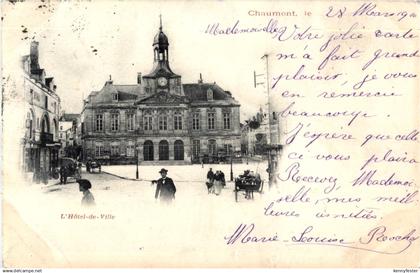 Chaumont, le 28 Mars 1901
Mademoiselle
Votre jolie carte
m'a fait grand
plaisir, je vous
en remercie
beaucoup.
J'espère que celle
ci vous plaira
Recevez, Mademoi-
selle, mes meil-
leures amitiés.
Marie-Louise Roche
L'Hôtel-de-Ville
kennyfester